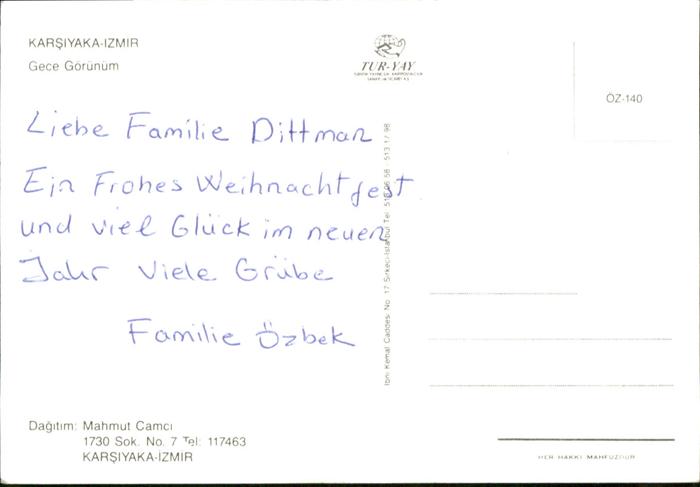 KARŞIYAKA-IZMIR
Gece Görünüm
TUR-YAY
ÖZ-140
Liebe Familie Dittman
Ein Frohes Weihnachtfest
und viel Glück im neuen
Jahr Viele Grübe
Familie Özbek
Ibni Kemal Caddesi No. 17 Sirkeci-İstanbul Tel:
Dağıtım: Mahmut Camcı
1730 Sok. No. 7 Tel: 117463
KARŞIYAKA-İZMİR
HER HAKKI MAHFUZDUR